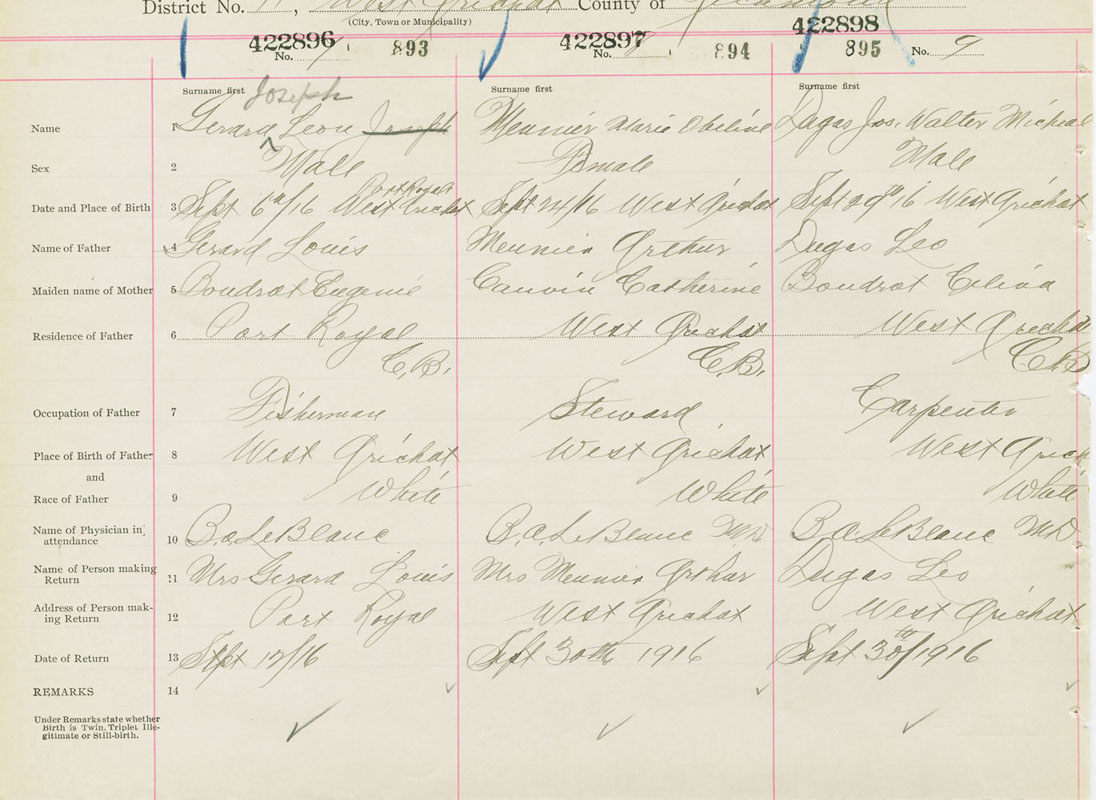 District No. 11, West Arichat County of Richmond
(City, Town or Municipality)
422896 422897 422898
No. 7 893 No. 8 894 895 No. 9
Surname first Surname first Surname first
Joseph
Name 1 Gerard ^ Leon Joseph Meunier Marie Obeline Dugas Jos. Walter Micheal
Sex 2 Male Female Male
Port Royal
Date and Place of Birth 3 Sept 6th/16 West Arichat Sept 24/16 West Arichat Sept 29th 16 West Arichat
Name of Father 4 Gerard Louis Meunier Arthur Dugas Leo
Maiden name of Mother 5 Boudrot Eugenie Cauvin Catherine Boudrot Celina
Residence of Father 6 Port Royal West Arichat West Arichat
C.B. C.B. C.B.
Occupation of Father 7 Fisherman Steward Carpenter
Place of Birth of Father 8 West Arichat West Arichat West Arich
and
Race of Father 9 White White White
Name of Physician in attendance 10 B.A. LeBlanc B.A. LeBlanc MD B.A. LeBlanc MD.
Name of Person making Return 11 Mrs Gerard Louis Mrs Meunier Arthur Dugas Leo
Address of Person mak-ing Return 12 Port Royal West Arichat West Arichat
Date of Return 13 Sept 12/16 Sept 30th 1916 Sept 30th/1916
REMARKS 14
Under Remarks state whether
Birth is Twin, Triplet Ille-
gitimate or Still-birth.